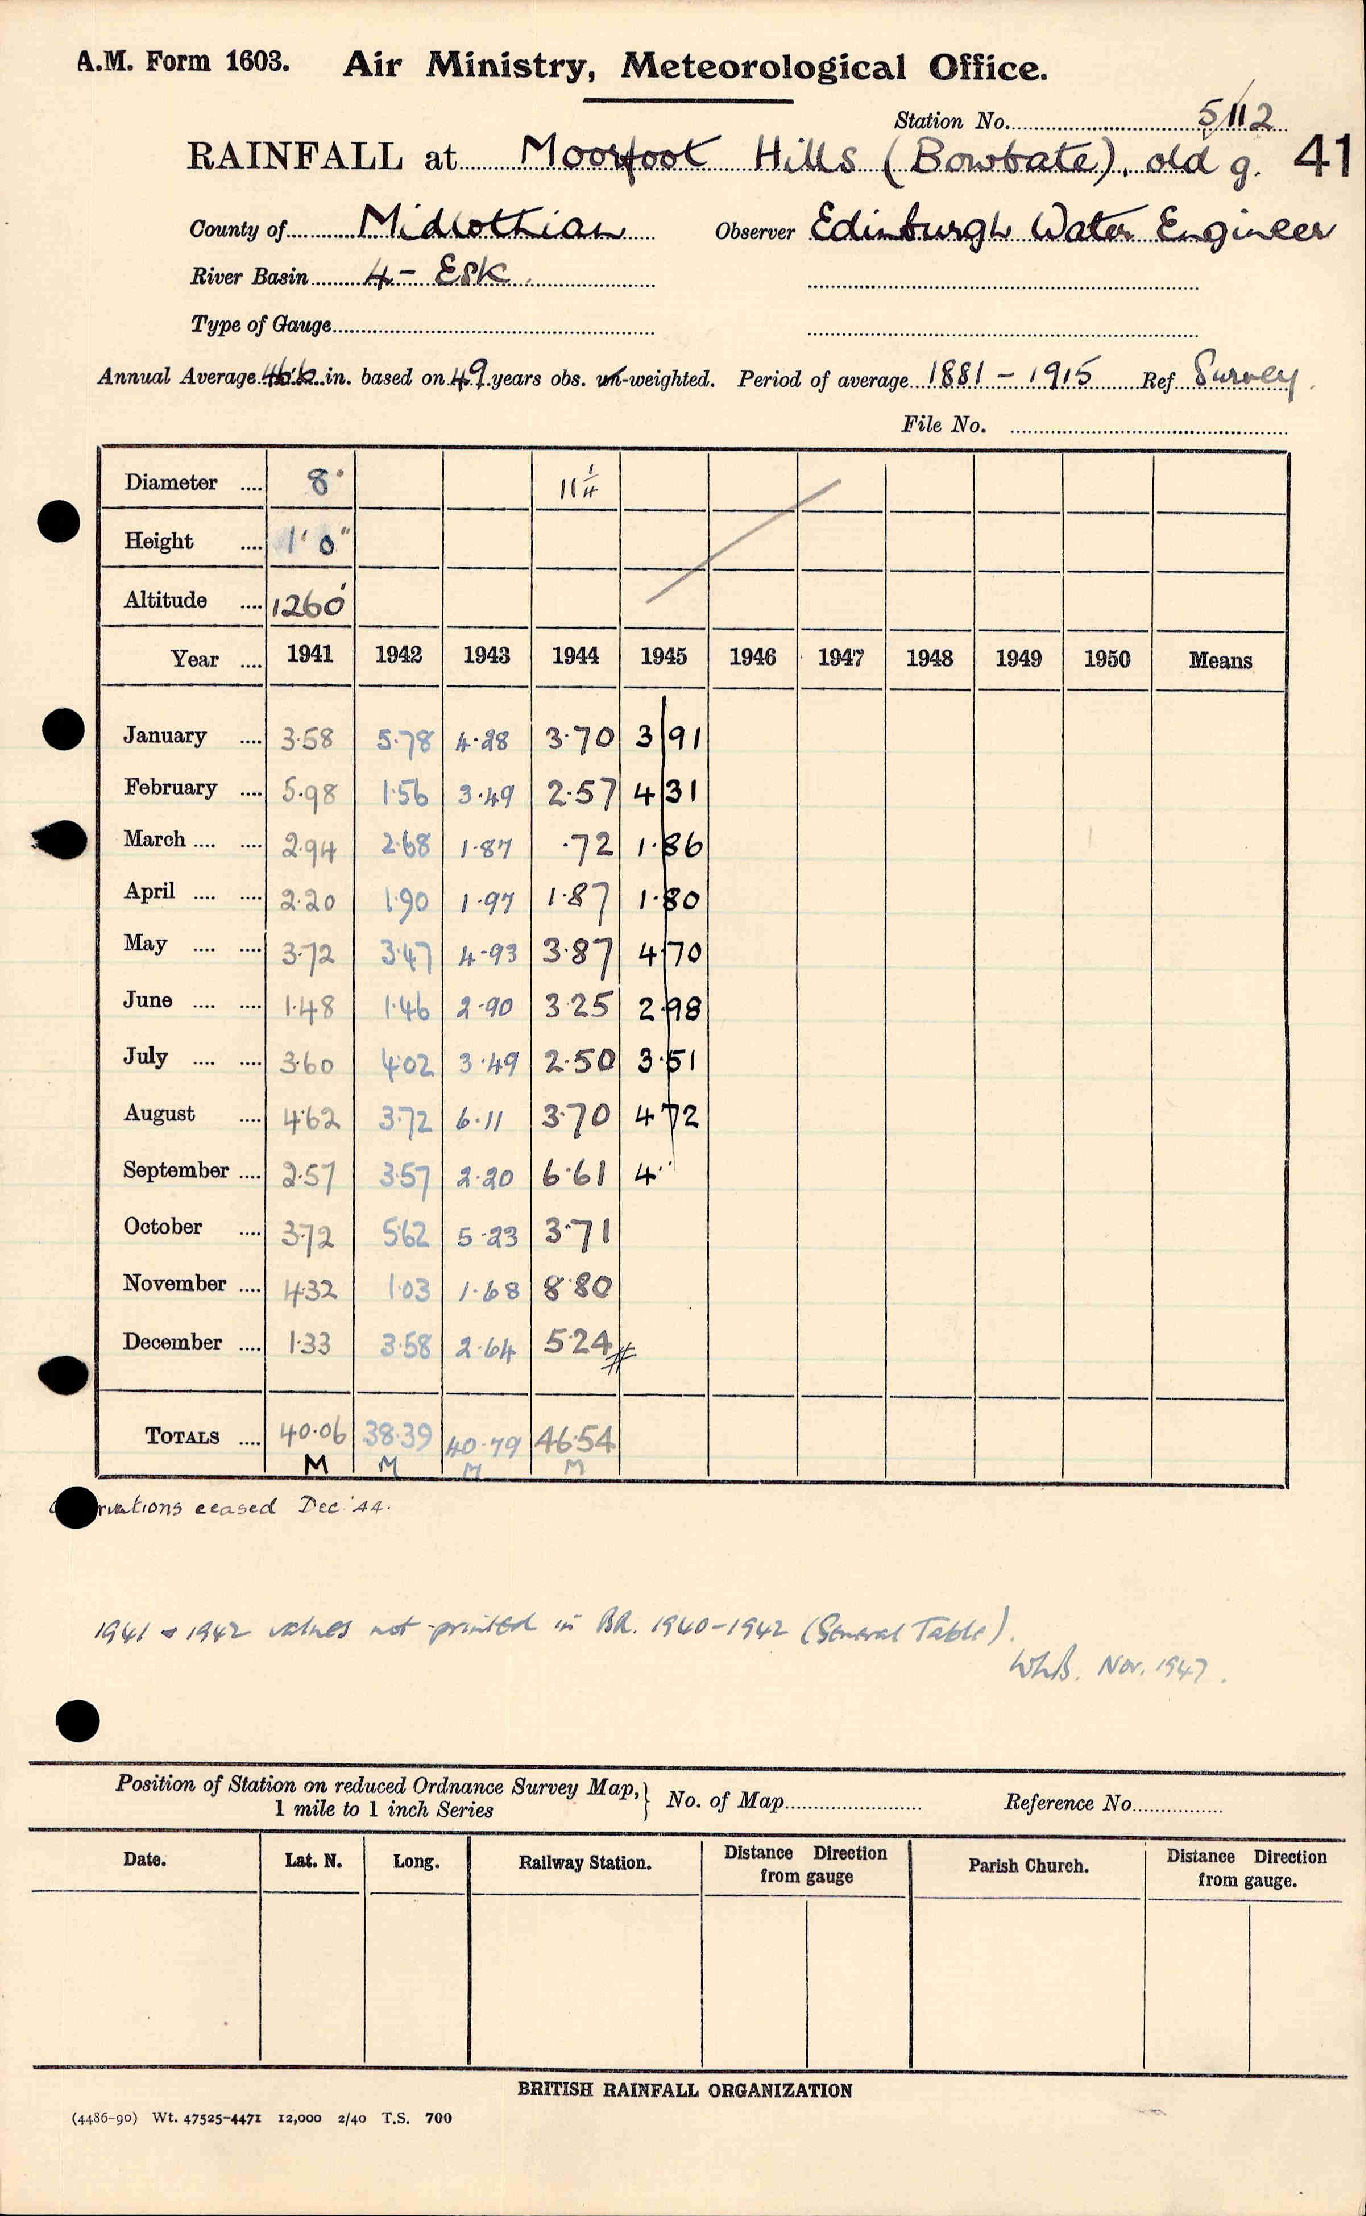 A.M. Form 1603. Air Ministry, Meteorological Office.
Station No. 5/112
RAINFALL at Moorfoot Hills (Bowbate), old g. 41
County of Midlothian Observer Edinburgh Water Engineer
River Basin 4 - Esk
Type of Gauge
Annual Average in. based on 49 years obs. un-weighted. Period of average 1881 - 1915 Ref Survey.
File No.
Diameter 8" 11 1/4
Height 1' 0"
Altitude 1260'
Year 1941 1942 1943 1944 1945 1946 1947 1948 1949 1950 Means
January 3.58 5.78 4.28 3.70 3.91
February 5.98 1.56 3.49 2.57 4.31
March 2.94 2.68 1.87 .72 1.86
April 2.20 1.90 1.97 1.87 1.80
May 3.72 3.47 4.93 3.87 4.70
June 1.48 1.46 2.90 3.25 2.98
July 3.60 4.02 3.49 2.50 3.51
August 4.62 3.72 6.11 3.70 4.72
September 2.57 3.57 2.20 6.61 4
October 3.72 5.62 5.23 3.71
November 4.32 1.03 1.68 8.80
December 1.33 3.58 2.64 5.24 #
TOTALS 40.06 38.39 40.79 46.54
M M M M
ceased Dec '44.
1941 & 1942 values not printed in B.R. 1940-1942 (General Table).
Nov. 1947.
Position of Station on reduced Ordnance Survey Map, 1 mile to 1 inch Series } No. of Map Reference No.
Date. Lat. N. Long. Railway Station. Distance Direction from gauge Parish Church. Distance Direction from gauge.
BRITISH RAINFALL ORGANIZATION
(4486-90) Wt. 47525-4471 12,000 2/40 T.S. 700